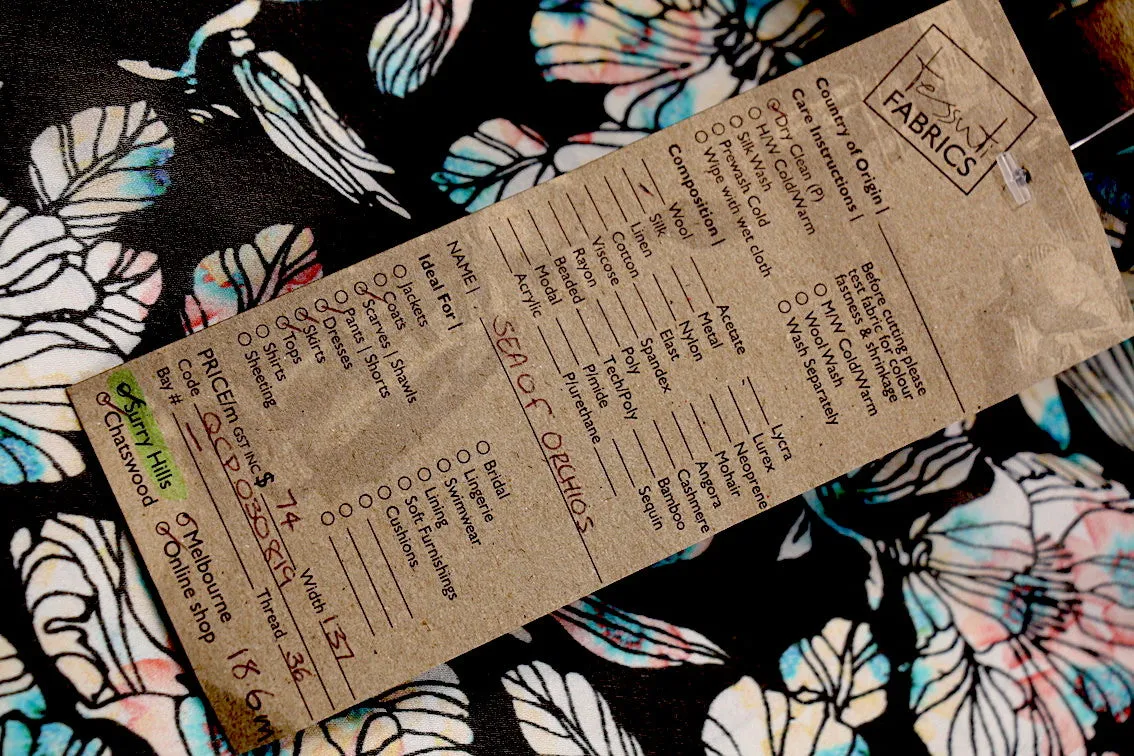 Tessuti
FABRICS
Country of Origin |
Care Instructions |
Dry Clean (P)
H/W Cold/Warm
Silk Wash
Prewash Cold
Wipe with wet cloth
Before cutting please
test fabric for colour
fastness & shrinkage
M/W Cold/Warm
Wool Wash
Wash Separately
Composition |
Wool
Silk
Linen
Cotton
Viscose
Rayon
Beaded
Modal
Acrylic
Acetate
Metal
Nylon
Elast
Spandex
Poly
Tech/Poly
P/mide
P/urethane
Lycra
Lurex
Neoprene
Mohair
Angora
Cashmere
Bamboo
Sequin
NAME | SEA OF ORCHIDS
Ideal For |
Jackets
Coats
Scarves | Shawls
Pants | Shorts
Dresses
Skirts
Tops
Shirts
Sheeting
Bridal
Lingerie
Swimwear
Lining
Soft Furnishings
Cushions
PRICE/m GST INC $ 74 Width 137
Code QCP030819 Thread 36
Bay #
Surry Hills
Chatswood
Melbourne
Online shop
186m